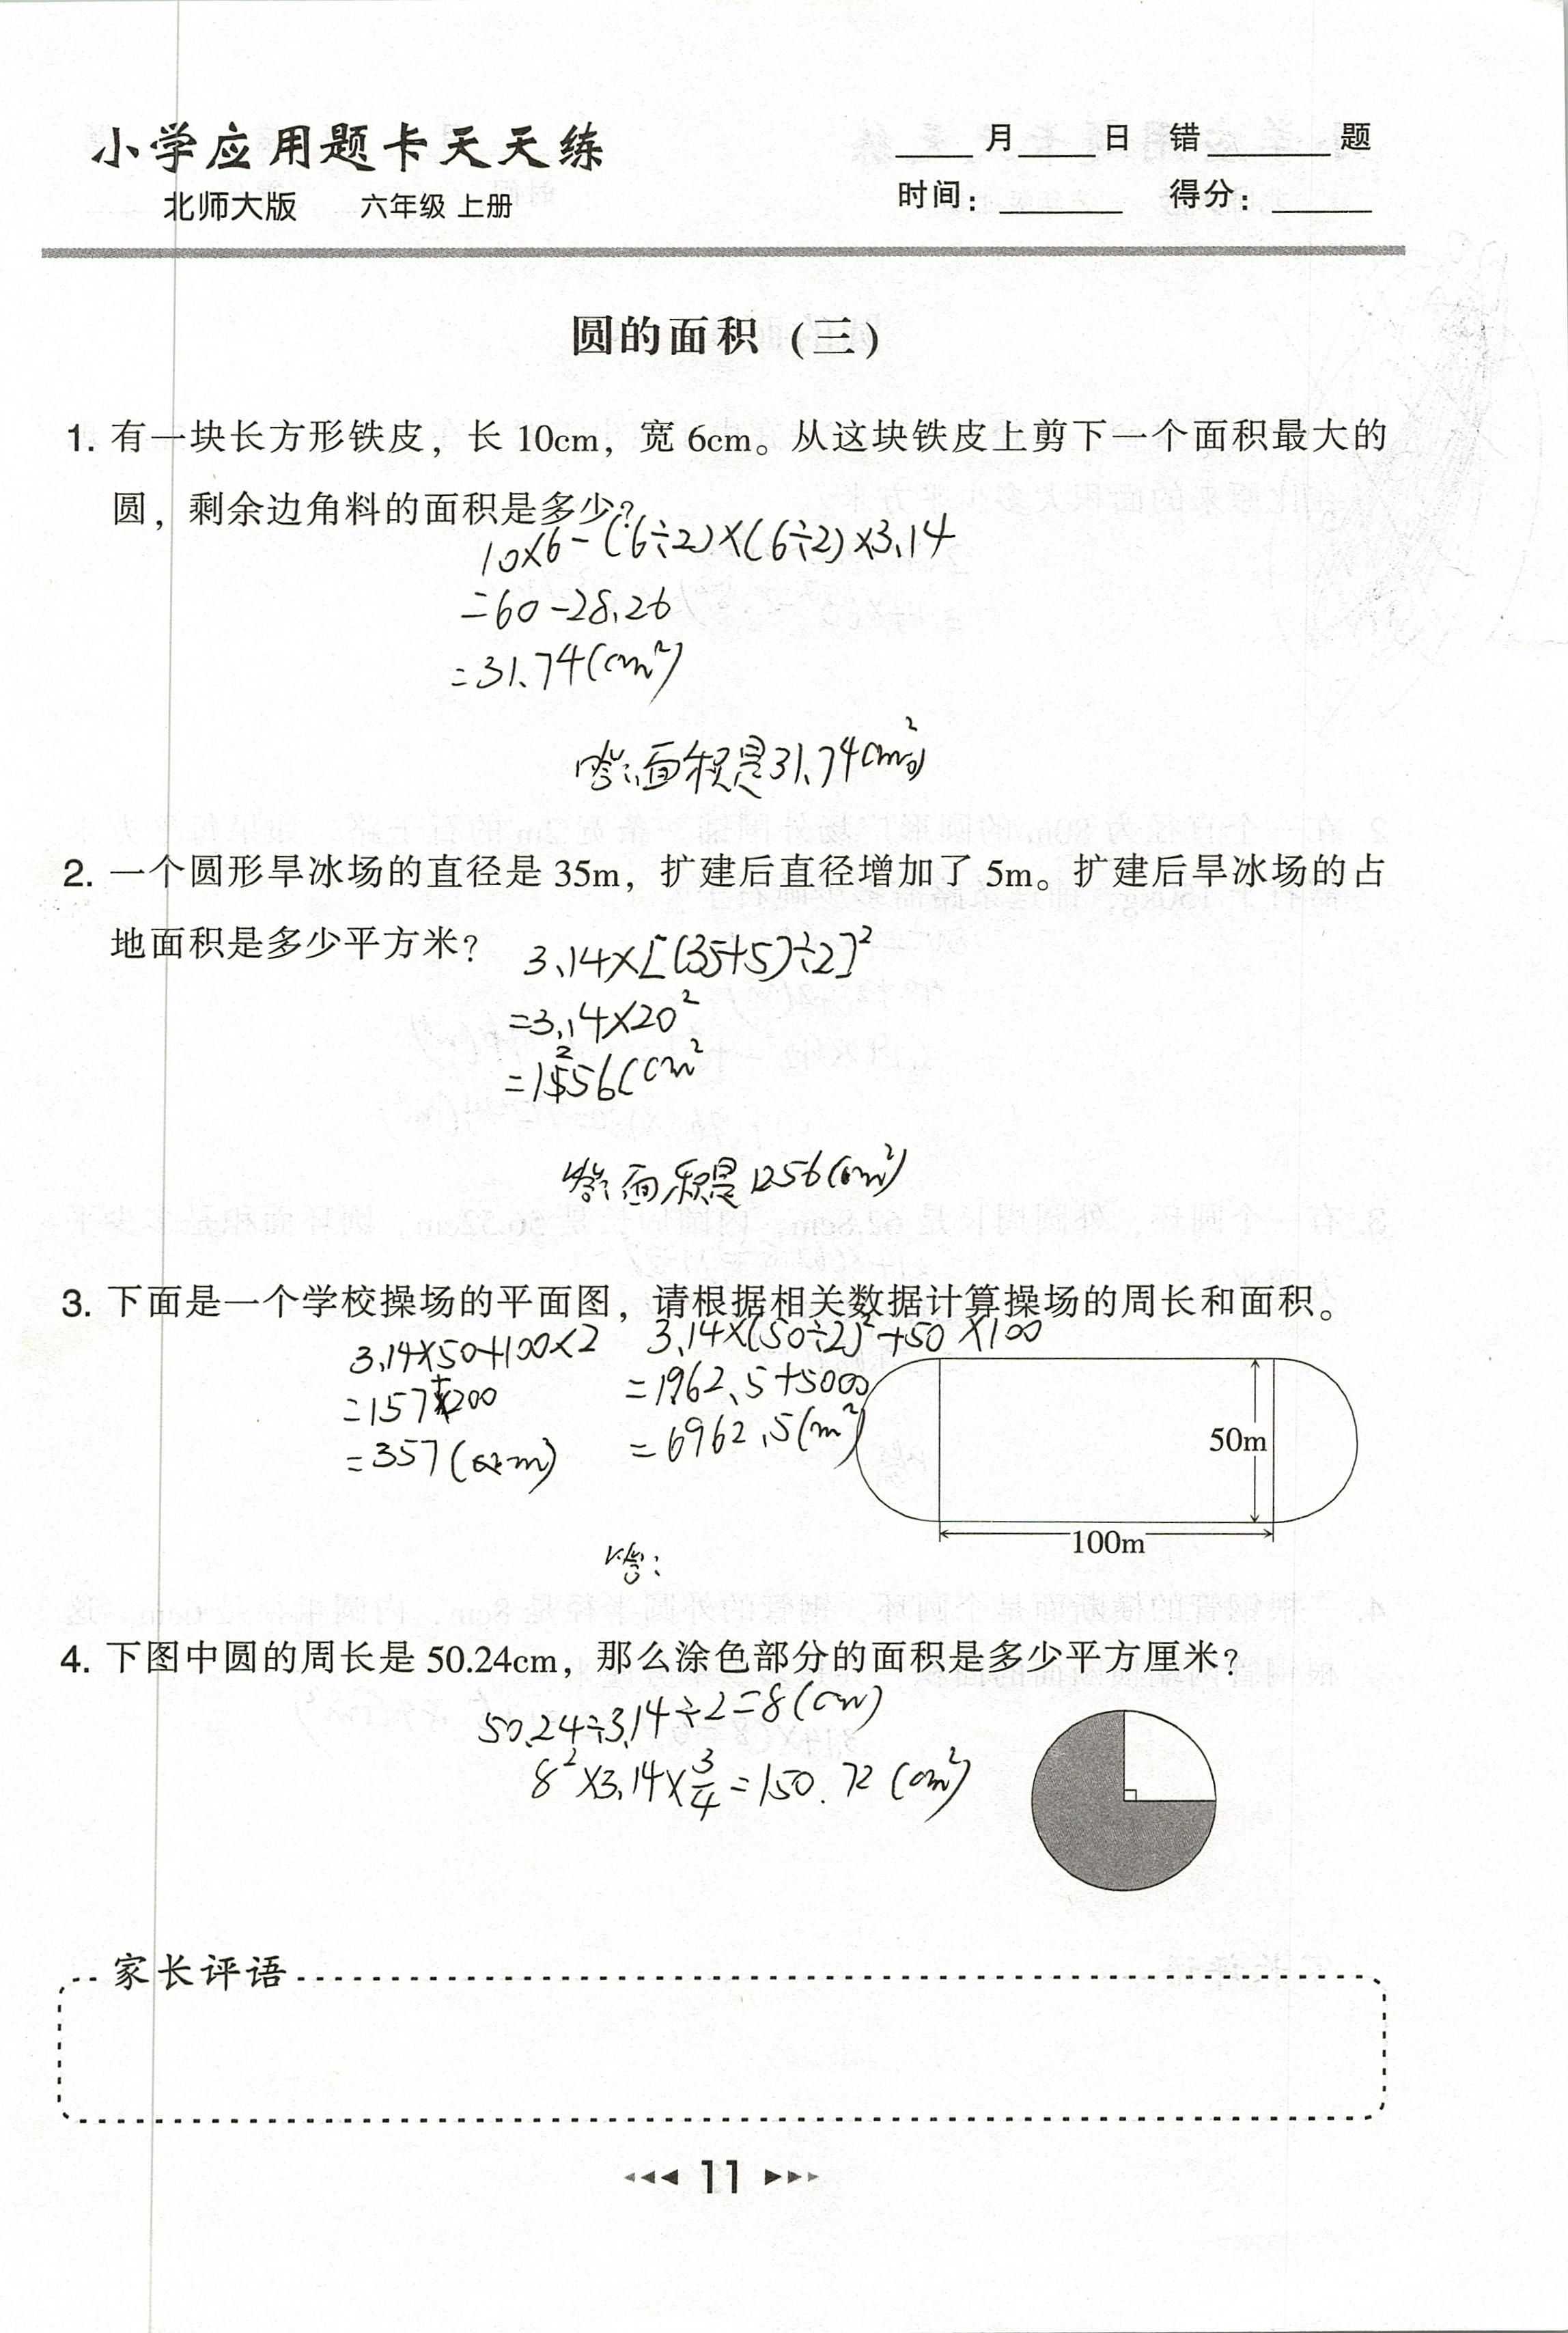 小学应用题卡天天练
北师大版 六年级 上册
____月____日 错______题
时间：______ 得分：_____
圆的面积（三）
1. 有一块长方形铁皮，长 10cm，宽 6cm。从这块铁皮上剪下一个面积最大的
圆，剩余边角料的面积是多少？
10×6-(6÷2)×(6÷2)×3.14
=60-28.26
=31.74(cm²)
答:面积是31.74cm²。
2. 一个圆形旱冰场的直径是 35m，扩建后直径增加了 5m。扩建后旱冰场的占
地面积是多少平方米？
3.14×[(35+5)÷2]²
=3.14×20²
=1256(cm²
答:面积是1256(cm²)
3. 下面是一个学校操场的平面图，请根据相关数据计算操场的周长和面积。
3.14×50+100×2
=157+200
=357(m)
3.14×(50÷2)²+50×100
=1962.5+5000
=6962.5(m²)
50m
100m
答:
4. 下图中圆的周长是 50.24cm，那么涂色部分的面积是多少平方厘米？
50.24÷3.14÷2=8(cm)
8²×3.14×3/4=150.72(cm²)
家长评语
11